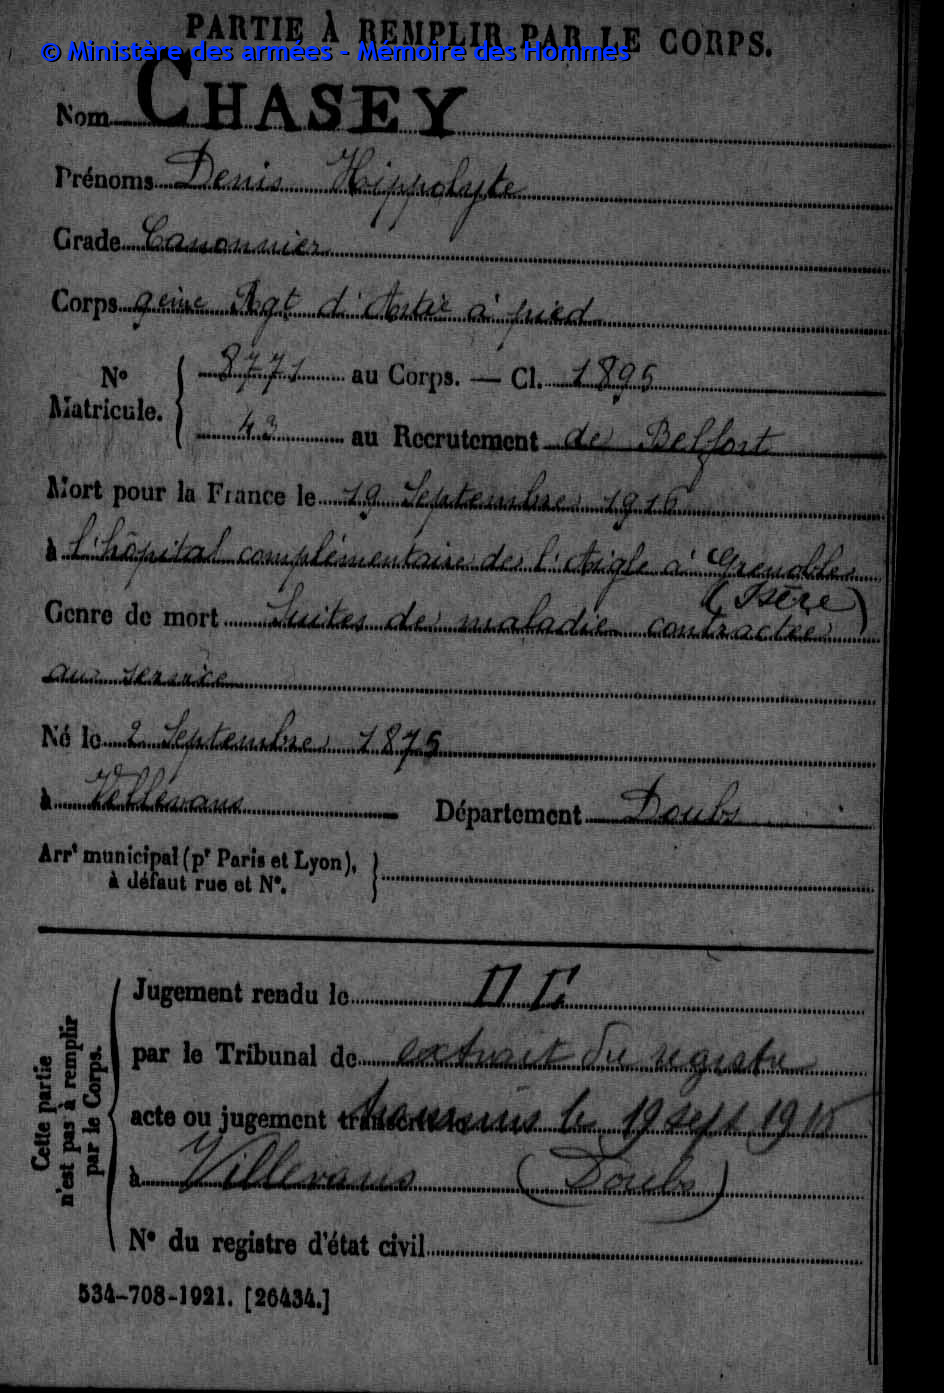 PARTIE À REMPLIR PAR LE CORPS.
© Ministère des armées - Mémoire des Hommes
Nom CHASEY
Prénoms Denis Hippolyte
Grade Canonnier
Corps 9eme Rgt d'Artie à pied
No Matricule. 8771 au Corps. — Cl. 1895
43 au Recrutement de Belfort
Mort pour la France le 19 Septembre 1916
à l'hôpital complémentaire de l'Aigle à Grenoble
(Isère)
Genre de mort Suites de maladie contractée
au service
Né le 2 Septembre 1875
à Vellevans Département Doubs
Arrt municipal (pr Paris et Lyon),
à défaut rue et No.
Cette partie
n'est pas à remplir
par le Corps.
Jugement rendu le
par le Tribunal de extrait du registre
acte ou jugement transcrit le transmis le 19 sept 1916
à Villevans (Doubs)
No du registre d'état civil
534-708-1921. [26434.]